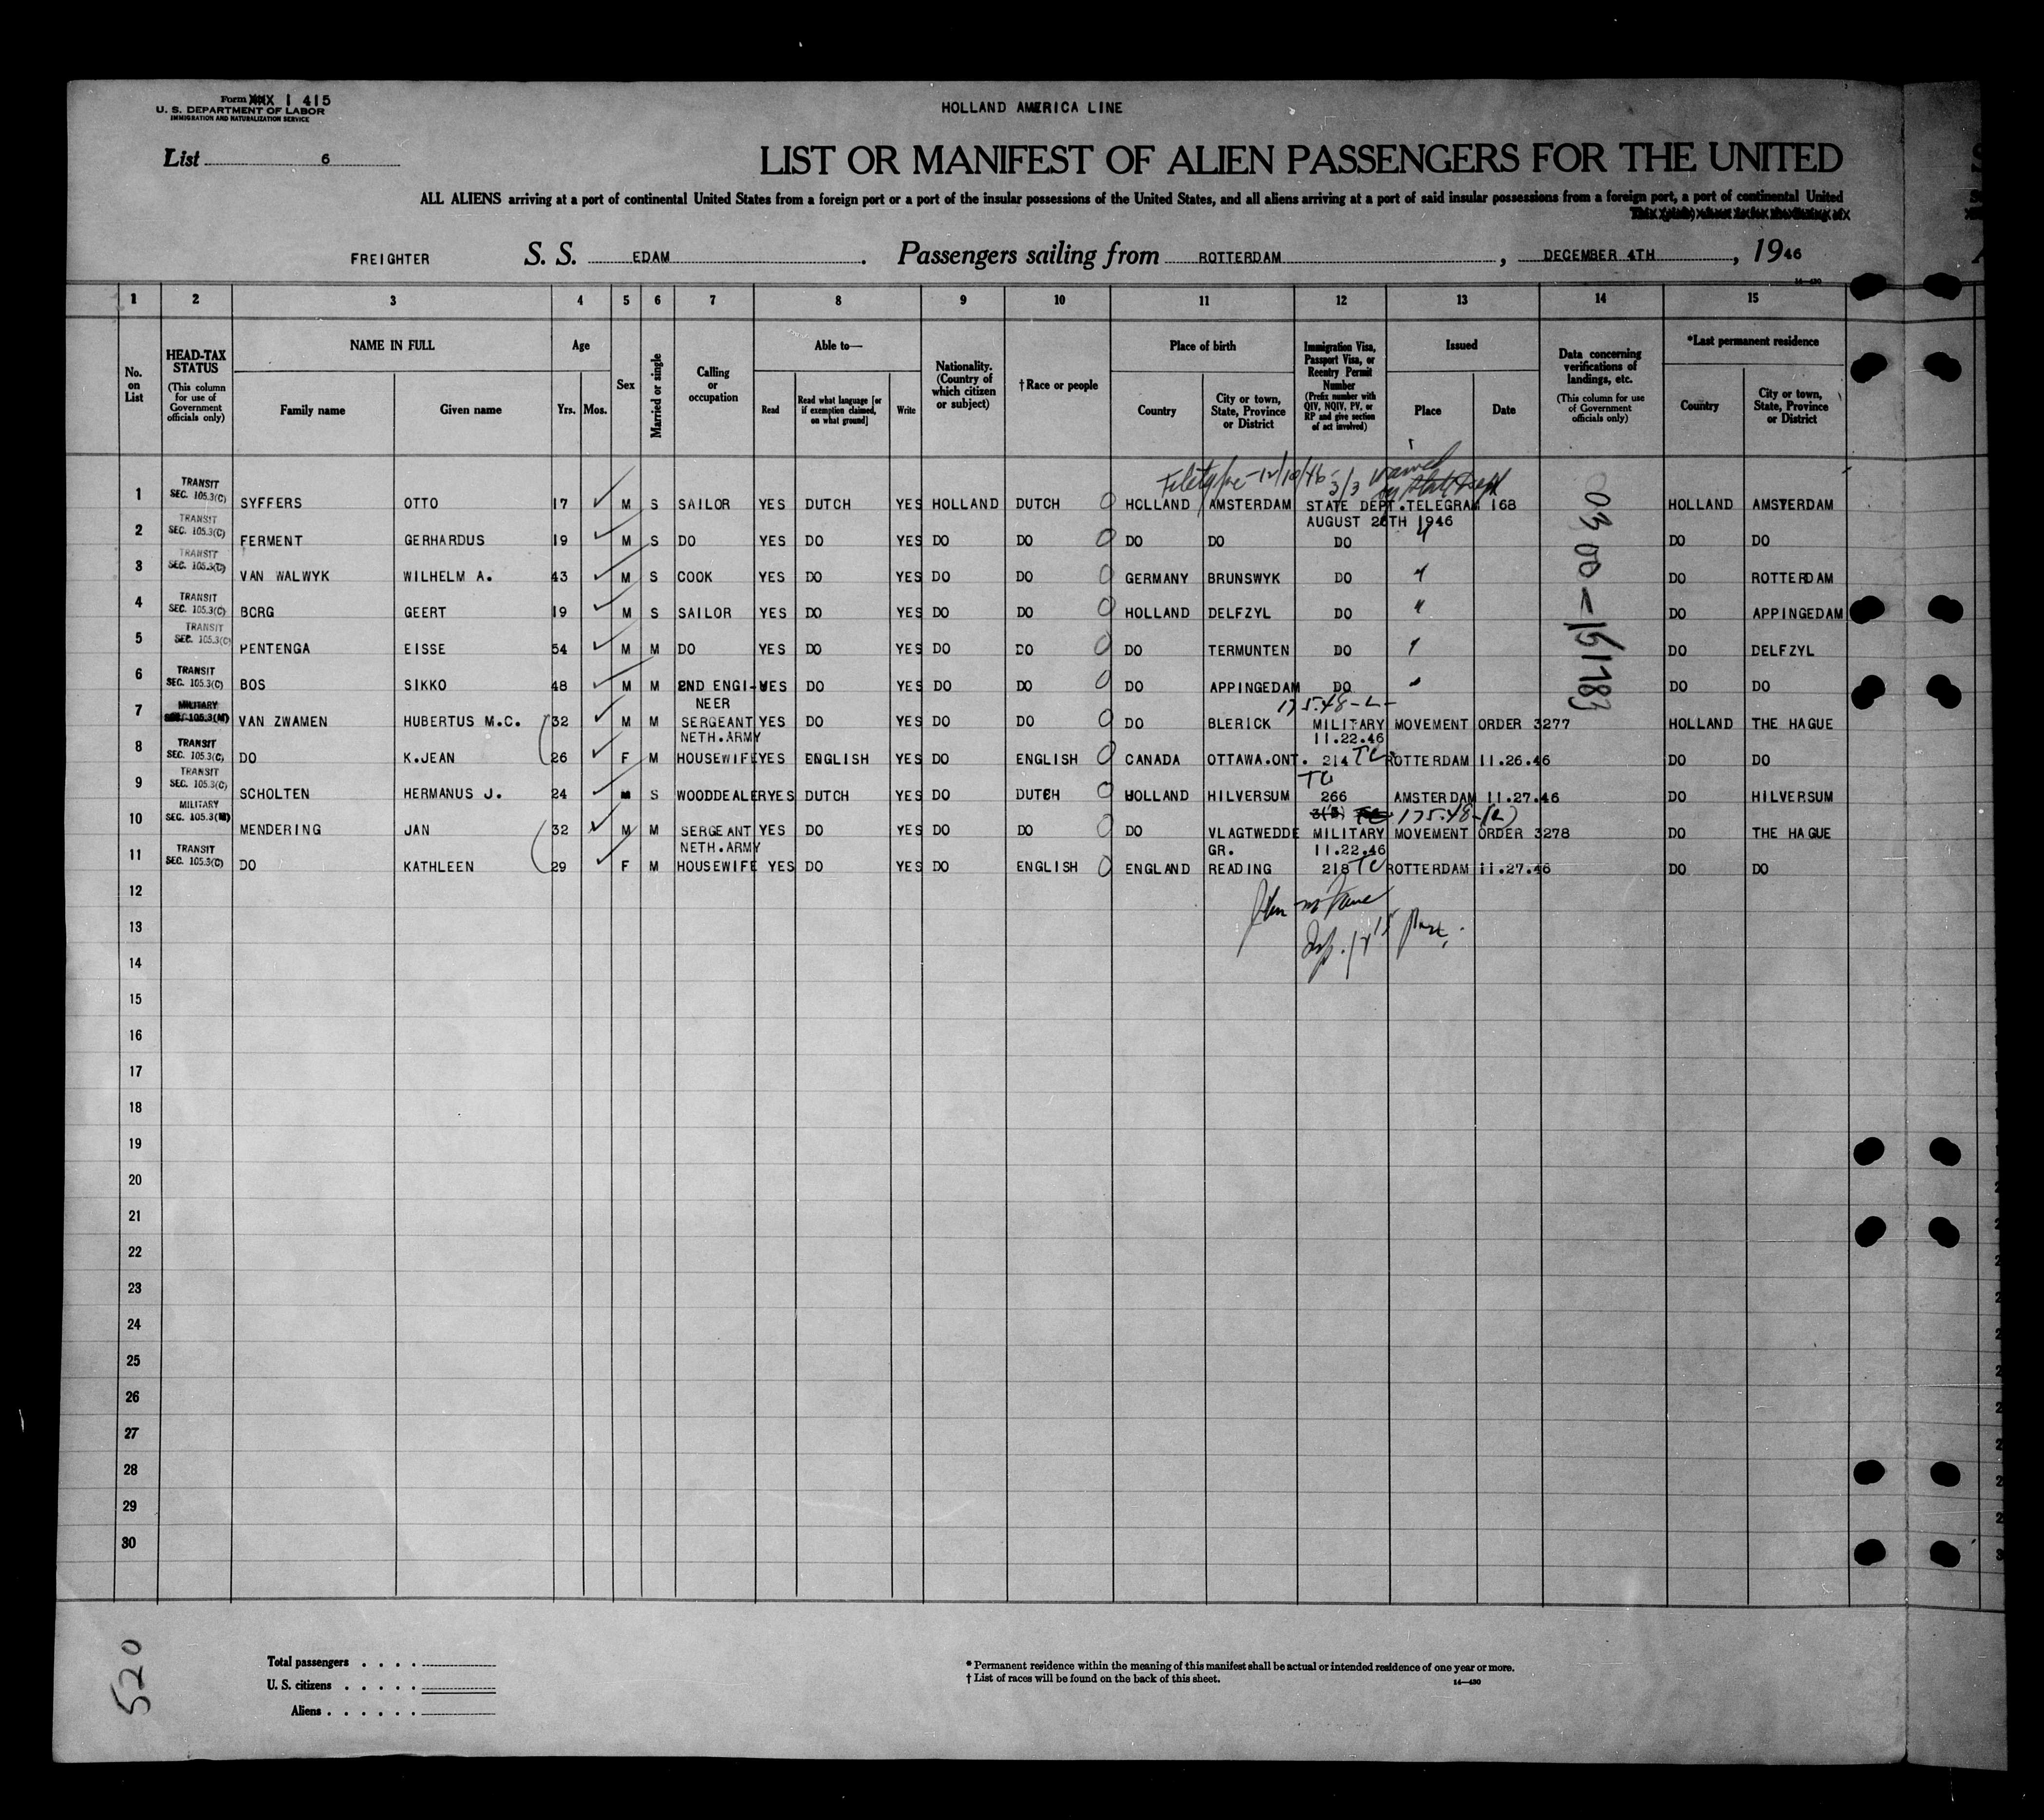 Form I 415
U. S. DEPARTMENT OF LABOR
IMMIGRATION AND NATURALIZATION SERVICE
HOLLAND AMERICA LINE
List 6
LIST OR MANIFEST OF ALIEN PASSENGERS FOR THE UNITED
ALL ALIENS arriving at a port of continental United States from a foreign port or a port of the insular possessions of the United States, and all aliens arriving at a port of said insular possessions from a foreign port, a port of continental United
FREIGHTER S. S. EDAM. Passengers sailing from ROTTERDAM, DECEMBER 4TH, 1946
1 2 3 4 5 6 7 8 9 10 11 12 13 14 15
No. on List
HEAD-TAX STATUS (This column for use of Government officials only)
NAME IN FULL Family name Given name
Age Yrs. Mos.
Sex
Married or single
Calling or occupation
Able to— Read Read what language [or if exemption claimed, on what ground] Write
Nationality. (Country of which citizen or subject)
† Race or people
Place of birth Country City or town, State, Province or District
Immigration Visa, Passport Visa, or Reentry Permit Number (Prefix number with QIV, NQIV, PV, or RP and give section of act involved)
Issued Place Date
Data concerning verifications of landings, etc. (This column for use of Government officials only)
*Last permanent residence Country City or town, State, Province or District
12/10/46 3/3
1 TRANSIT SEC. 105.3(C) SYFFERS OTTO 17 M S SAILOR YES DUTCH YES HOLLAND DUTCH HOLLAND AMSTERDAM STATE DEPT.TELEGRAM 168 HOLLAND AMSTERDAM
AUGUST 26TH 1946
2 TRANSIT SEC. 105.3(C) FERMENT GERHARDUS 19 M S DO YES DO YES DO DO DO DO DO " DO DO
3 TRANSIT SEC. 105.3(C) VAN WALWYK WILHELM A. 43 M S COOK YES DO YES DO DO GERMANY BRUNSWYK DO " DO ROTTERDAM
4 TRANSIT SEC. 105.3(C) BORG GEERT 19 M S SAILOR YES DO YES DO DO HOLLAND DELFZYL DO " DO APPINGEDAM
5 TRANSIT SEC. 105.3(C) PENTENGA EISSE 54 M M DO YES DO YES DO DO DO TERMUNTEN DO " DO DELFZYL
6 TRANSIT SEC. 105.3(C) BOS SIKKO 48 M M 2ND ENGI- YES DO YES DO DO DO APPINGEDAM DO " DO DO
NEER 175.48-L-
7 MILITARY SEC. 105.3(M) VAN ZWAMEN HUBERTUS M.C. 32 M M SERGEANT YES DO YES DO DO DO BLERICK MILITARY MOVEMENT ORDER 3277 HOLLAND THE HAGUE
NETH.ARMY 11.22.46
8 TRANSIT SEC. 105.3(C) DO K.JEAN 26 F M HOUSEWIFE YES ENGLISH YES DO ENGLISH CANADA OTTAWA.ONT. 214 TC ROTTERDAM 11.26.46 DO DO
TC
9 TRANSIT SEC. 105.3(C) SCHOLTEN HERMANUS J. 24 M S WOODDEALER YES DUTCH YES DO DUTCH HOLLAND HILVERSUM 266 AMSTERDAM 11.27.46 DO HILVERSUM
175.48-(L)
10 MILITARY SEC. 105.3(M) MENDERING JAN 32 M M SERGEANT YES DO YES DO DO DO VLAGTWEDDE MILITARY MOVEMENT ORDER 3278 DO THE HAGUE
NETH.ARMY GR. 11.22.46
11 TRANSIT SEC. 105.3(C) DO KATHLEEN 29 F M HOUSEWIFE YES DO YES DO ENGLISH ENGLAND READING 218 TC ROTTERDAM 11.27.46 DO DO
0300-
12
13
14
15
16
17
18
19
20
21
22
23
24
25
26
27
28
29
30
520
Total passengers . . . .
U. S. citizens . . . . .
Aliens . . . . . .
* Permanent residence within the meaning of this manifest shall be actual or intended residence of one year or more.
† List of races will be found on the back of this sheet.
14—430